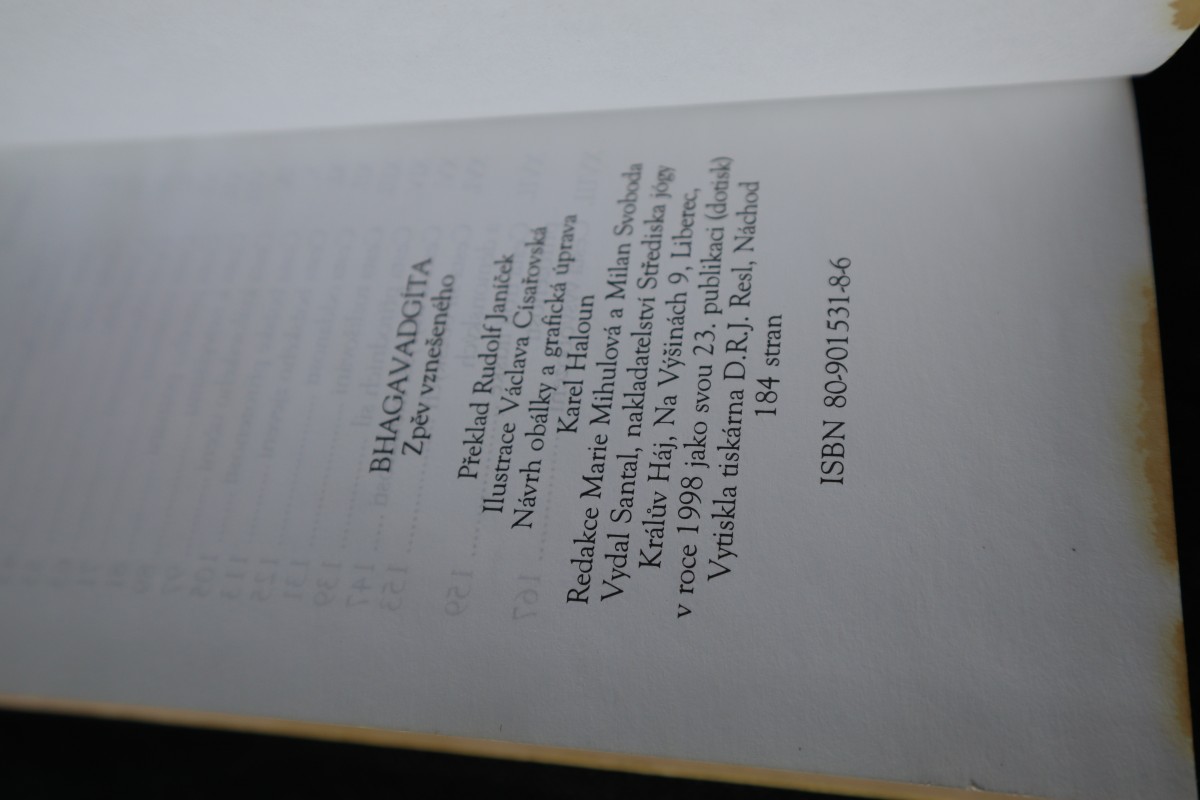 BHAGAVADGÍTA
Zpěv vznešeného
Překlad Rudolf Janíček
Ilustrace Václava Císařovská
Návrh obálky a grafická úprava
Karel Haloun
Redakce Marie Mihulová a Milan Svoboda
Vydal Santal, nakladatelství Střediska jógy
Králův Háj, Na Výšinách 9, Liberec,
v roce 1998 jako svou 23. publikaci (dotisk)
Vytiskla tiskárna D.R.J. Resl, Náchod
184 stran
ISBN 80-901531-8-6